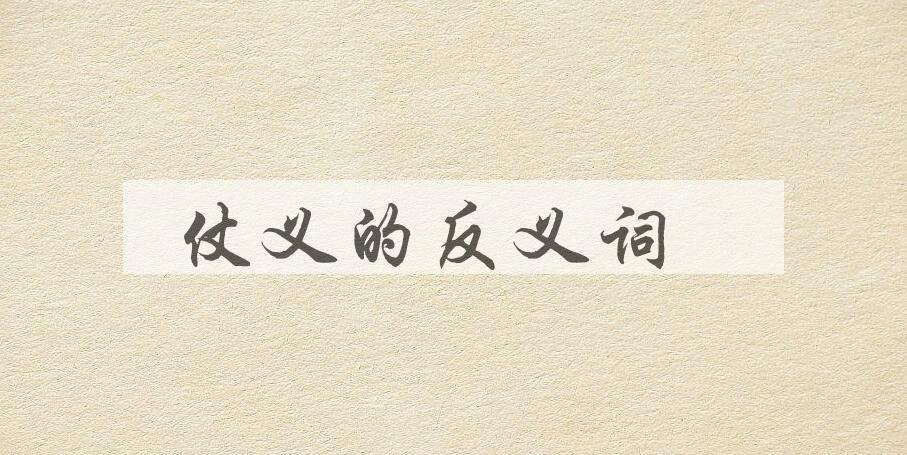 仗义的反义词